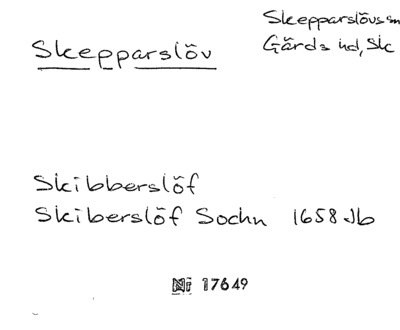 Skepparslöv
Skepparslövs sn
Gärds hd, Sk
Skibberslöf
Skiberslöf Sochn 1658 Jb
Nr 17649